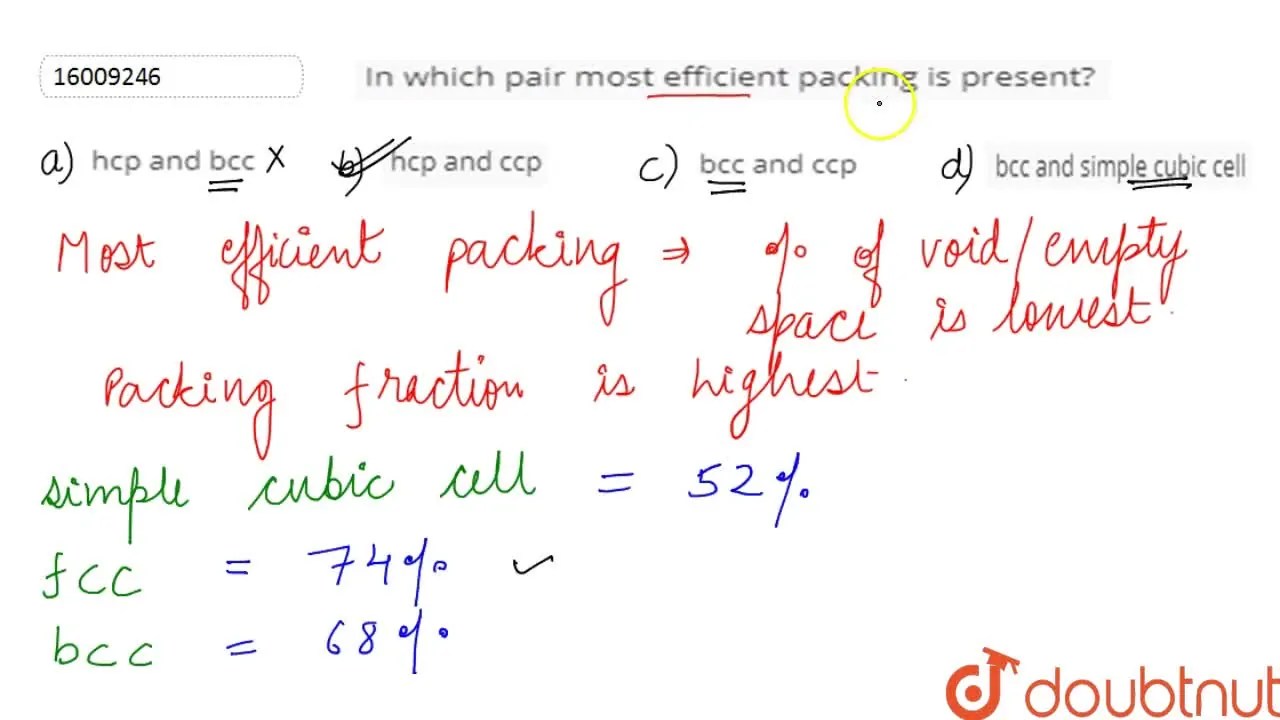 16009246 In which pair most efficient packing is present?
a) hcp and bcc X b) hcp and ccp c) bcc and ccp d) bcc and simple cubic cell
Most efficient packing ⇒ % of void/empty
space is lowest.
Packing fraction is highest.
simple cubic cell = 52%
fcc = 74% ✓
bcc = 68%
doubtnut